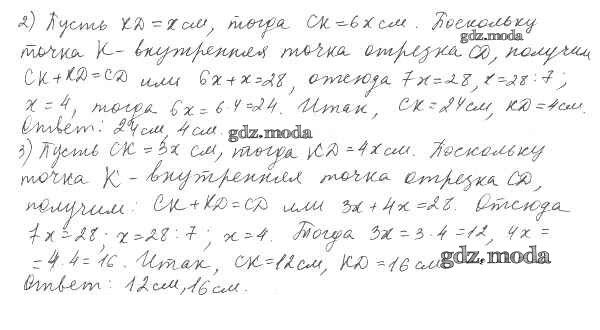 2) Пусть KD = x см, тогда CK = 6x см. Поскольку
gdz.moda
точка K - внутренняя точка отрезка CD, получим
CK + KD = CD или 6x + x = 28, отсюда 7x = 28, x = 28 : 7;
x = 4, тогда 6x = 6·4 = 24. Итак, CK = 24 см, KD = 4 см.
Ответ: 24 см, 4 см.
gdz.moda
3) Пусть CK = 3x см, тогда KD = 4x см. Поскольку
точка K - внутренняя точка отрезка CD,
получим: CK + KD = CD или 3x + 4x = 28. Отсюда
7x = 28; x = 28 : 7; x = 4. Тогда 3x = 3·4 = 12, 4x =
= 4·4 = 16. Итак, CK = 12 см, KD = 16 см
gdz.moda
Ответ: 12 см, 16 см.